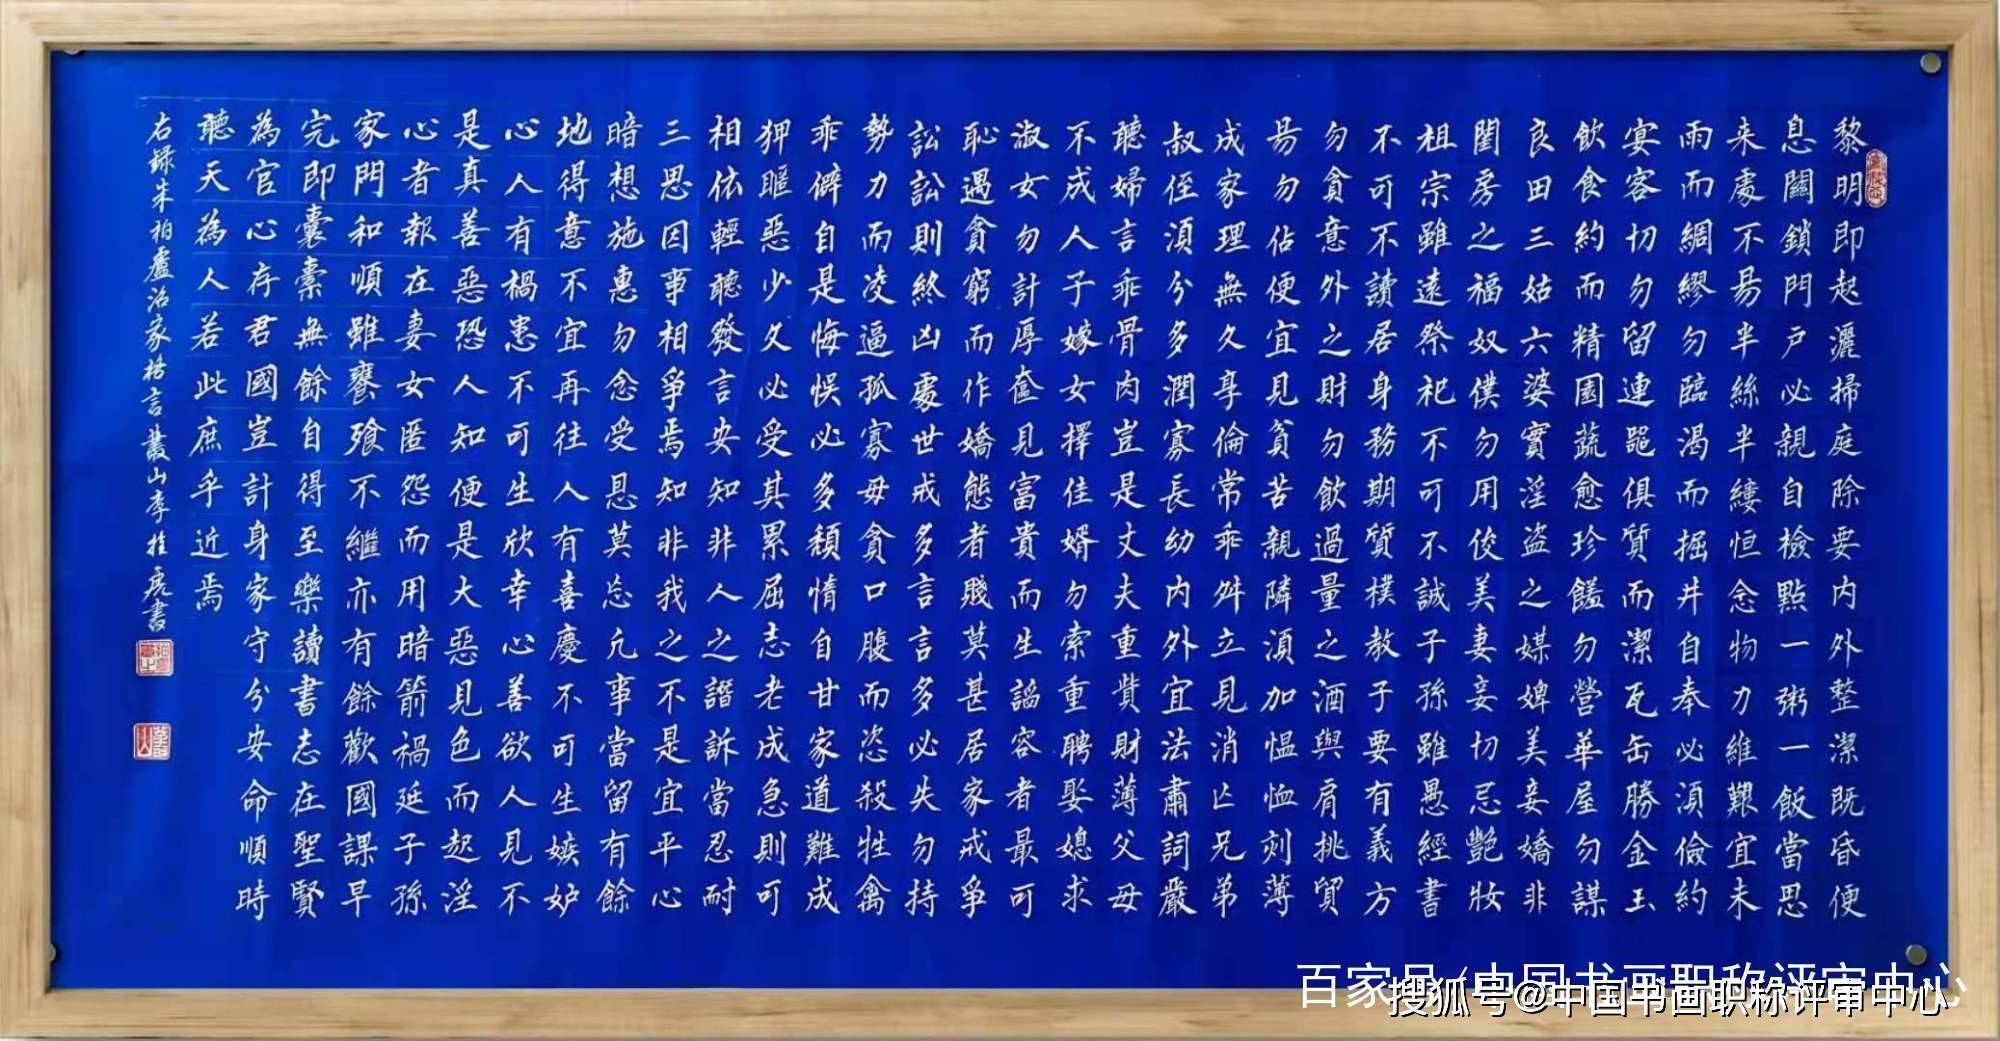 黎明即起灑掃庭除要内外整潔既昏便
息關鎖門户必親自檢點一粥一飯當思
来處不易半絲半縷恒念物力維艱宜未
雨而綢繆勿臨渴而掘井自奉必須儉約
宴客切勿留連器俱質而潔瓦缶勝金玉
飲食約而精園蔬愈珍饈勿營華屋勿謀
良田三姑六婆實淫盗之媒婢美妾嬌非
閨房之福奴僕勿用俊美妻妾切忌艷妝
祖宗雖遠祭祀不可不誠子孫雖愚經書
不可不讀居身務期質樸教子要有義方
勿貪意外之財勿飲過量之酒與肩挑貿
易勿佔便宜見貧苦親隣須加愠恤刻薄
成家理無久享倫常乖舛立見消亡兄弟
叔侄須分多潤寡長幼内外宜法肅詞嚴
聽婦言乖骨肉豈是丈夫重貲財薄父母
不成人子嫁女擇佳婿勿索重聘娶媳求
淑女勿計厚奩見富貴而生謟容者最可
恥遇貪窮而作嬌態者賤莫甚居家戒爭
訟訟則終凶處世戒多言言多必失勿持
勢力而凌逼孤寡毋貪口腹而恣殺牲禽
乖僻自是悔悮必多頹惰自甘家道難成
狎暱惡少久必受其累屈志老成急則可
相依輕聽發言安知非人之譖訴當忍耐
三思因事相爭焉知非我之不是宜平心
暗想施惠勿念受恩莫忘凢事當留有餘
地得意不宜再往人有喜慶不可生嫉妒
心人有禍患不可生欣幸心善欲人見不
是真善惡恐人知便是大惡見色而起淫
心者報在妻女匿怨而用暗箭禍延子孫
家門和順雖饔飧不繼亦有餘歡國課早
完即囊橐無餘自得至樂讀書志在聖賢
為官心存君國豈計身家守分安命順時
聽天為人若此庶乎近焉
右錄朱柏廬治家格言叢山李桂彦書
百家号/中国书画职称评审中心
搜狐号@中国书画职称评审中心